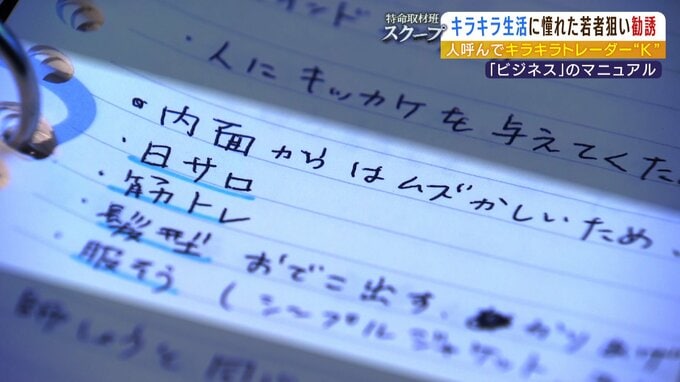 特命取材班
スクープ
キラキラ生活に憧れた若者狙い勧誘
人呼んでキラキラトレーダー“K”
「ビジネス」のマニュアル
・人にキッカケを与えてくた
・内面からはムズかしいため、
・日サロ
・筋トレ
・髪型 おでこ出す、
・服そう (シンプルジャケット